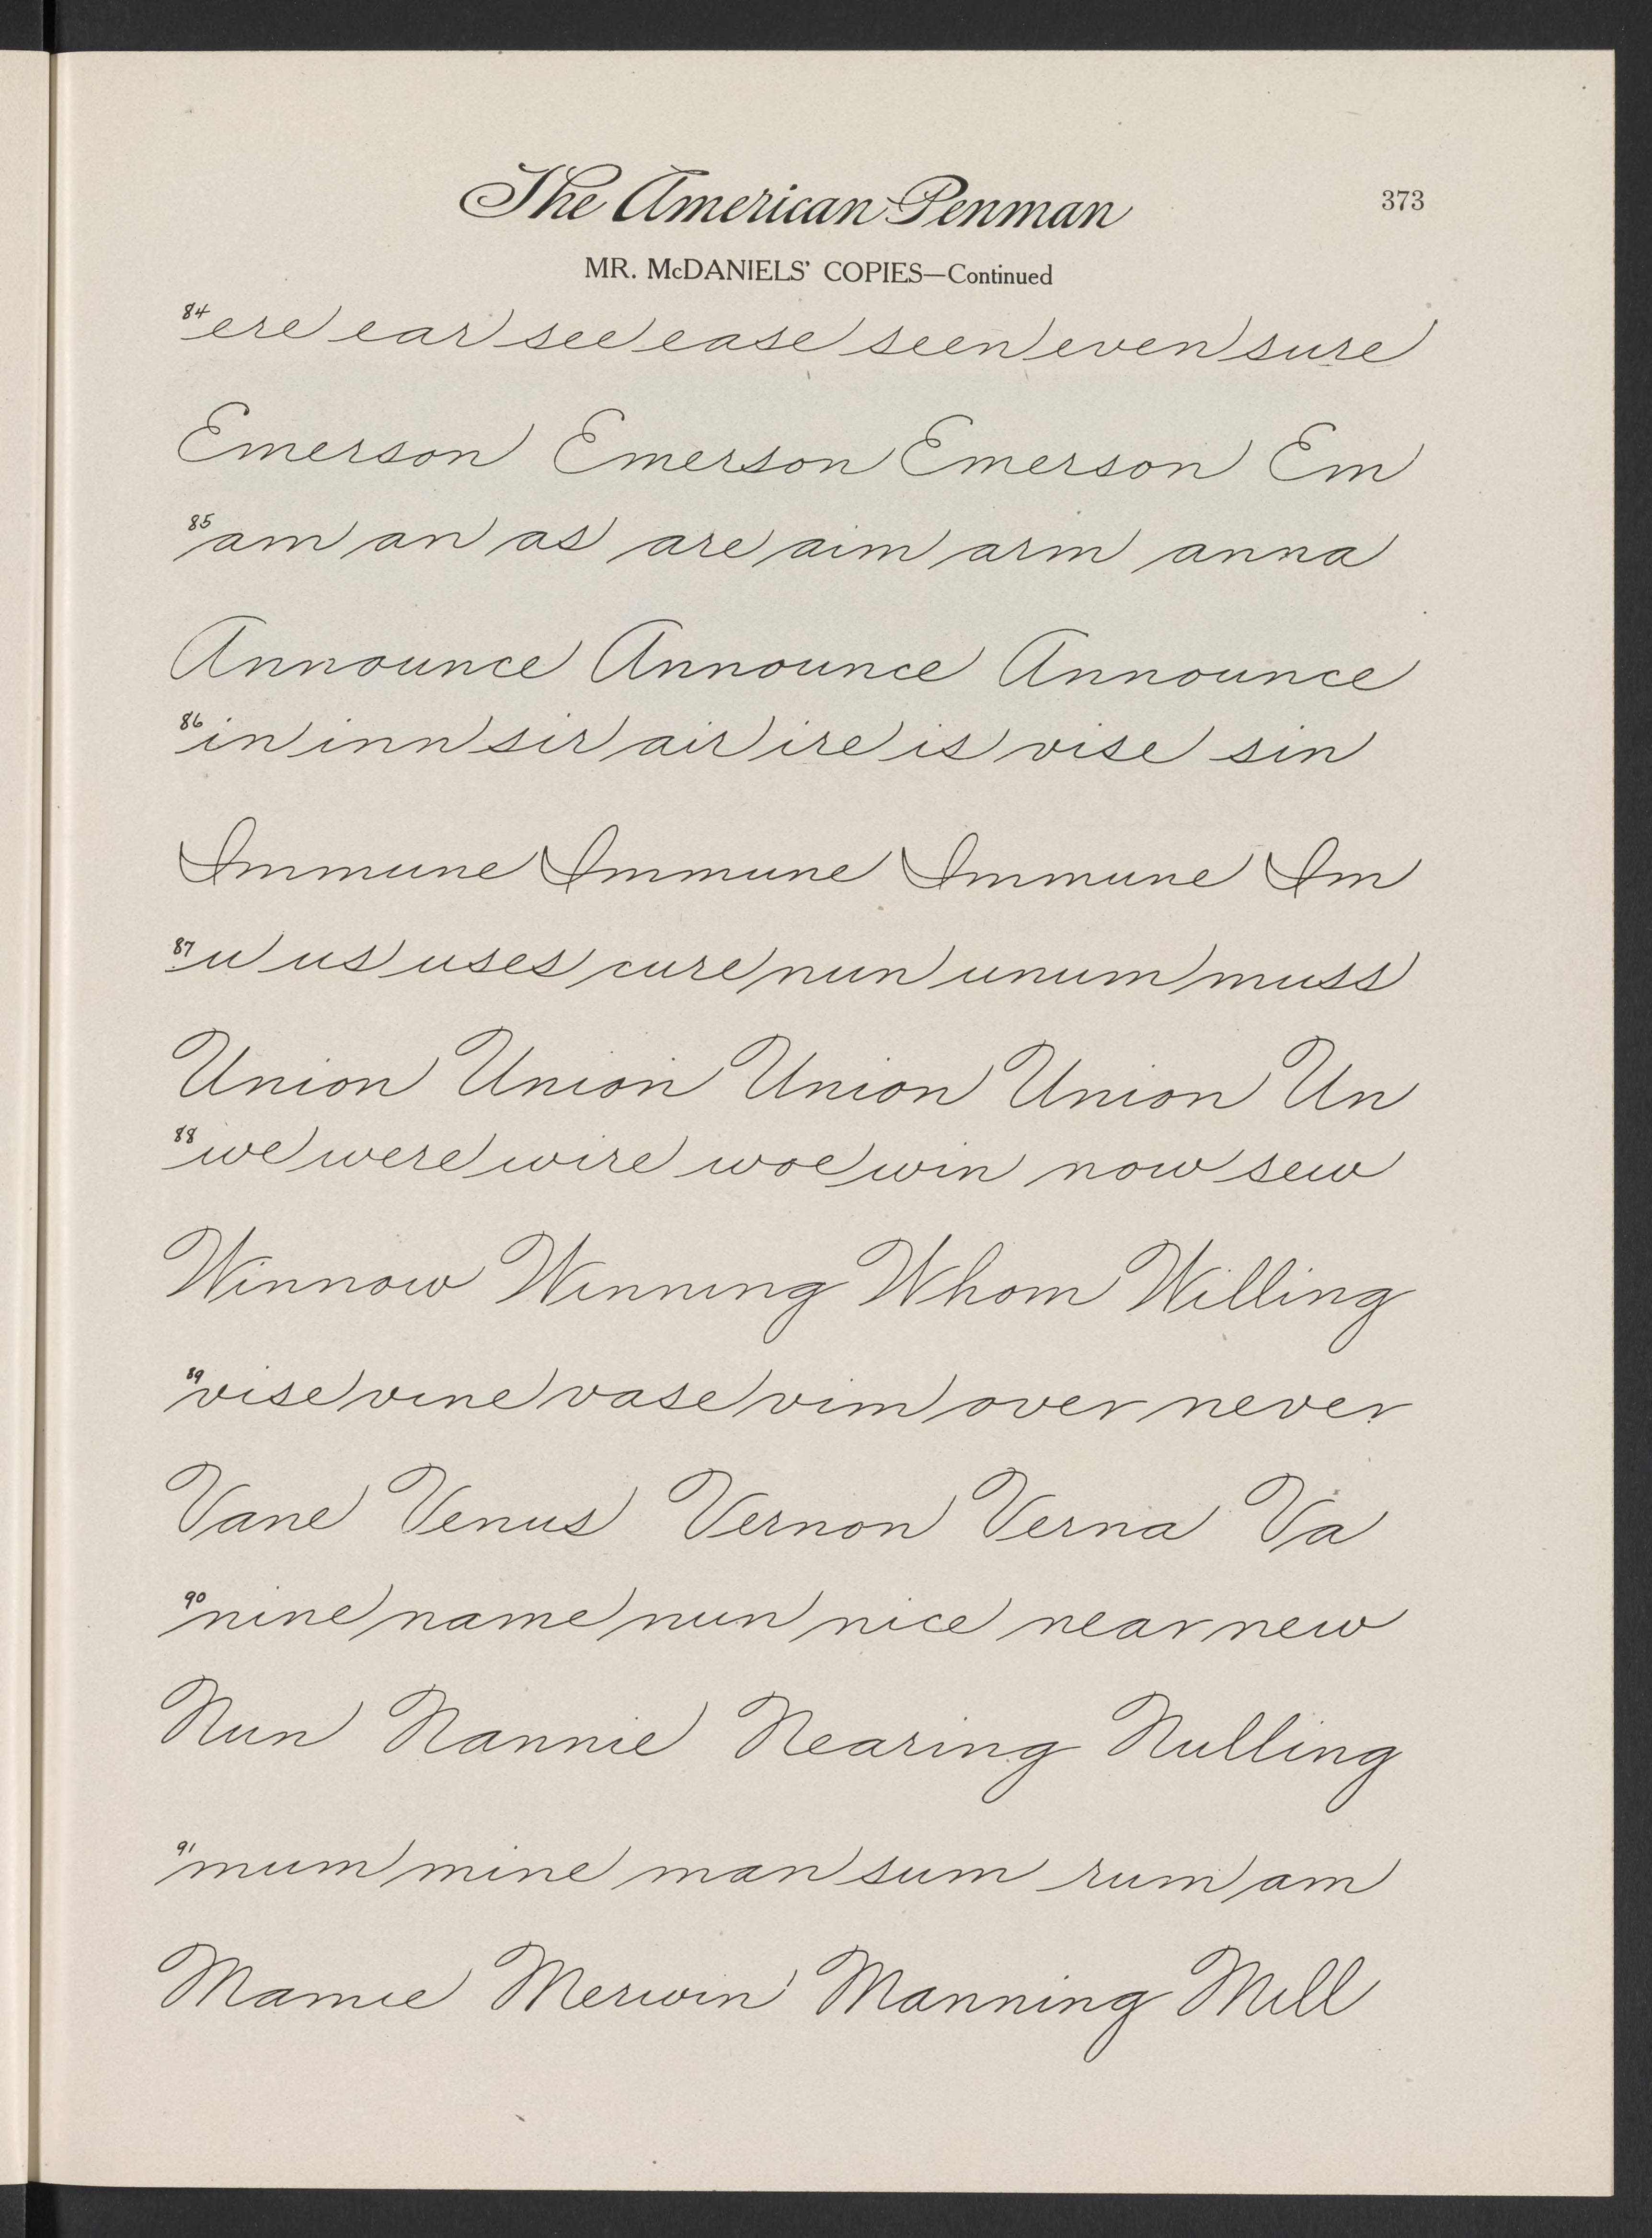 The American Penman 373
MR. McDANIELS' COPIES—Continued
84 ere ear see ease seen even sure
Emerson Emerson Emerson Em
85 am an as are aim arm anna
Announce Announce Announce
86 in inn sir air ire is vise sin
Immune Immune Immune Im
87 u us uses cure nun unum muss
Union Union Union Union Un
88 we were wire woe win now sew
Winnow Winning Whom Willing
89 vise vine vase vim over never
Vane Venus Vernon Verna Va
90 nine name nun nice near new
Nun Nannie Nearing Nulling
91 mum mine man sum rum am
Mamie Merwin Manning Mill